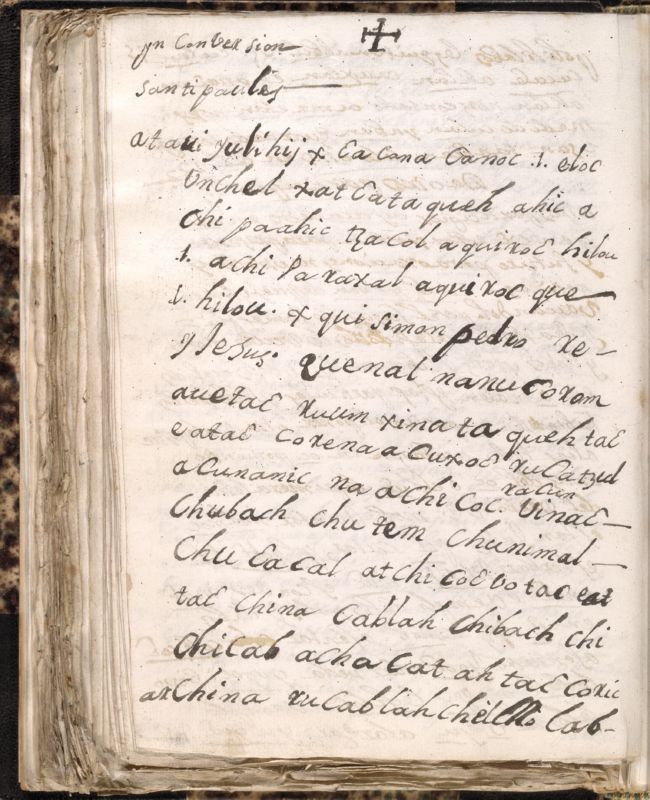 yn Conversion
Santi paules
atavi yulihij x ɛa cona ɛanoc .t. eloc
Vnchel xat ɛata queh ahic a
chi paahic tzacol aquixoɛ hilou
.t. achi paraxal aquixoc que
.t. hilou. x qui simon pedro xe-
y Jesus. quenal nanu coxom
auetaɛ ruum xinata queh taɛ
eataɛ coxena a cuxoɛ ru Catzul
a Cunanic na achi Coc. racun Vinaɛ-
Chubach chu tem Chunimal-
Chu ɛa Cal at chi Coɛ vo tac
taɛ China Cablah Chibach chi
Chi Cab acha Cat ah taɛ Coxic
ar China ru Cablah Chel Cab-